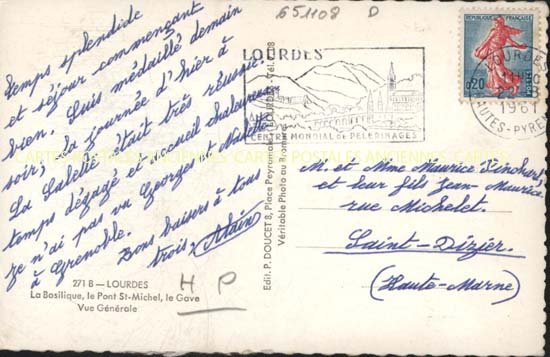 651108 D
Temps splendide
et séjour commençant
bien. Suis médaillé demain
soir, la journée d'hier à
La Salette était très réussie.
temps dégagé et accueil chaleureux
je n'ai pas vu Georges et
à Grenoble.
Bons baisers à tous
trois, Alain
271 B — LOURDES
La Basilique, le Pont St-Michel, le Gave
Vue Générale
H P
Edit. P. DOUCET 8, Place Peyramale
Véritable Photo au
LOURDES
CENTRE MONDIAL DE PELERINAGES
REPUBLIQUE FRANÇAISE
0,20
POSTES
LOURDES
1961
HAUTES-PYRENEES
M. et Mme Maurice
et leur fils Jean-Maurice
rue Michelet.
Saint-Dizier.
(Haute-Marne)